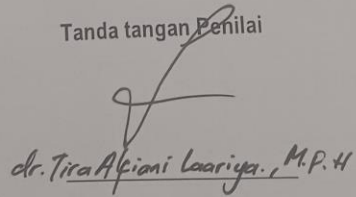 Tanda tangan Penilai
dr. Tira Alfiani Laariya., M.P.H